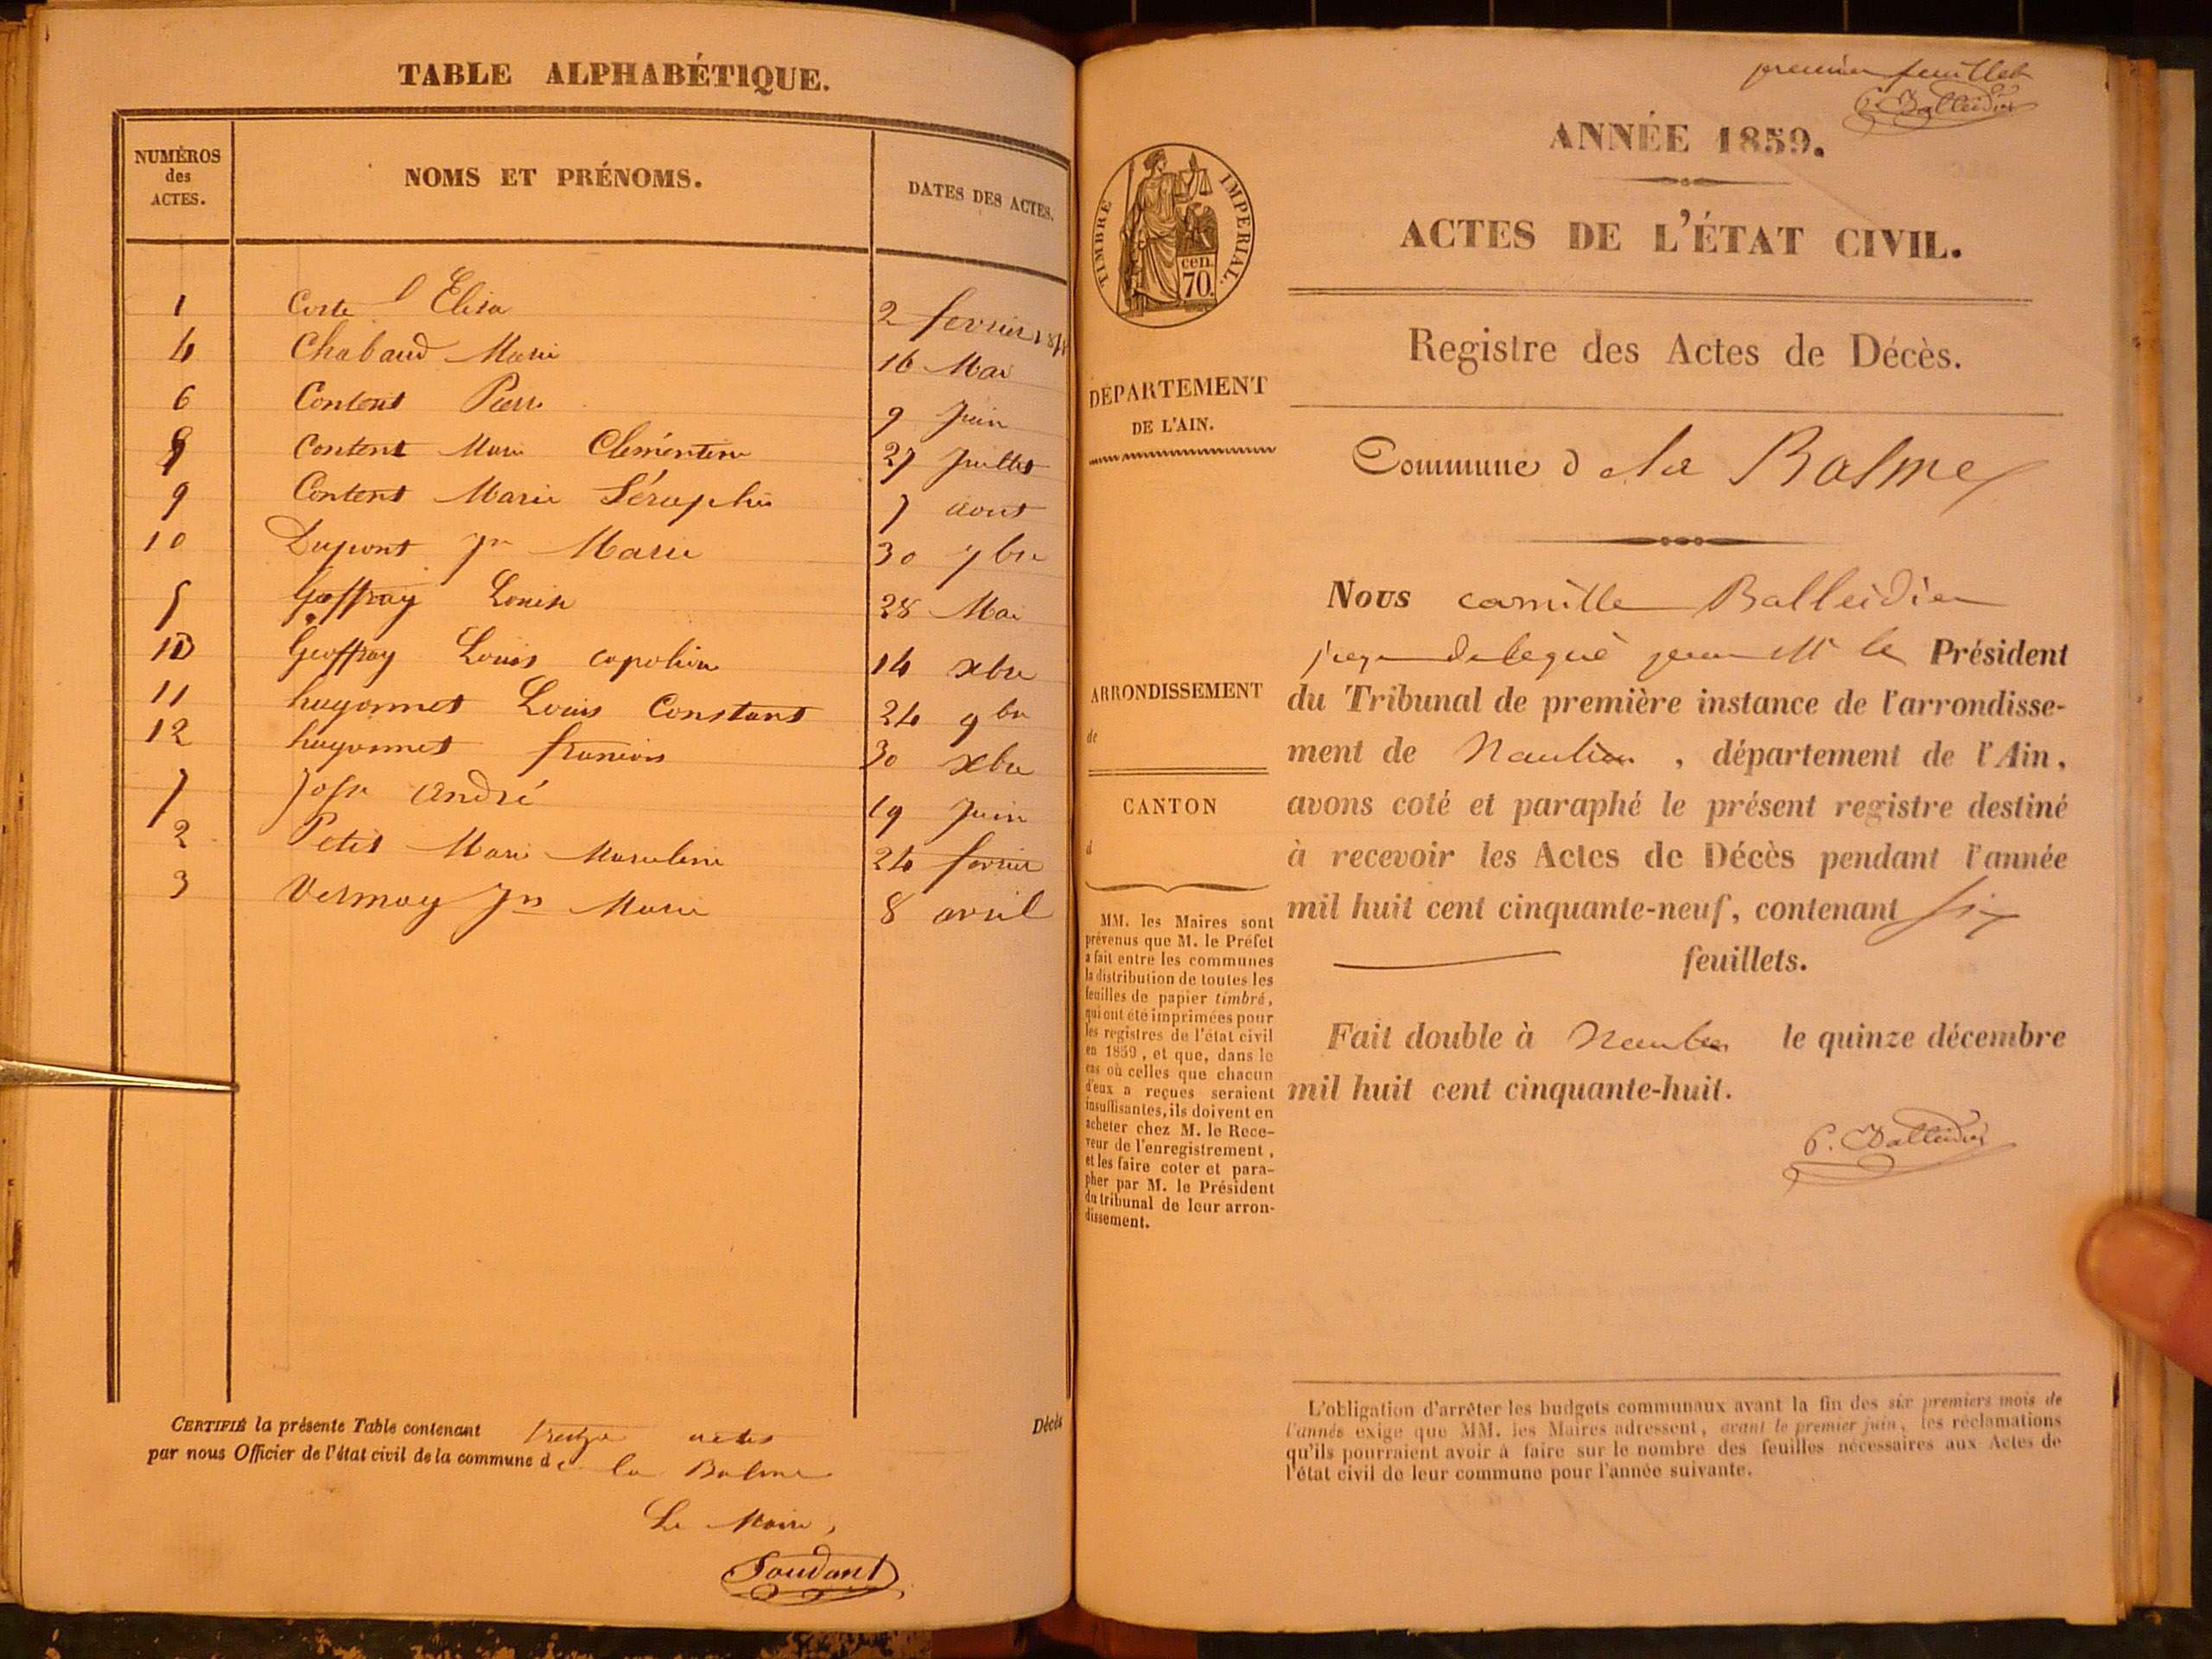 TABLE ALPHABÉTIQUE.
NUMÉROS
des
ACTES.
NOMS ET PRÉNOMS.
DATES DES ACTES.
1 Elisa 2 fevrier
4 Chabaud Marie 16 Mai
6 Content Pierre 9 Juin
8 Content Marie Clémentine 27 Juillet
9 Content Marie Séraphie 7 aout
10 Dupont Jn Marie 30 7bre
5 Geoffray Louise 28 Mai
Geoffray Louis 14 xbre
11 hugonnet Louis Constant 24 9bre
12 hugonnet francois 30 xbre
7 André 19 Juin
2 Petit Marie 24 fevrier
3 Vermay Jn Marie 8 avril
CERTIFIÉ la présente Table contenant treize actes Décès
par nous Officier de l'état civil de la commune de la Balme
Le Maire,
premier feuillet
C. Balleidier
ANNÉE 1859.
ACTES DE L'ÉTAT CIVIL.
Registre des Actes de Décès.
TIMBRE IMPERIAL.
cen.
70.
DÉPARTEMENT
DE L'AIN.
ARRONDISSEMENT
de
CANTON
d
MM. les Maires sont
prévenus que M. le Préfet
a fait entre les communes
la distribution de toutes les
feuilles de papier timbré,
qui ont été imprimées pour
les registres de l'état civil
en 1859, et que, dans le
cas où celles que chacun
d'eux a reçues seraient
insuffisantes, ils doivent en
acheter chez M. le Rece-
veur de l'enregistrement,
et les faire coter et para-
pher par M. le Président
du tribunal de leur arron-
dissement.
Commune d la Balme
Nous camille Balleidier
juge delegué par Mr le Président
du Tribunal de première instance de l'arrondisse-
ment de Nantua, département de l'Ain,
avons coté et paraphé le présent registre destiné
à recevoir les Actes de Décès pendant l'année
mil huit cent cinquante-neuf, contenant six
feuillets.
Fait double à Nantua le quinze décembre
mil huit cent cinquante-huit.
C. Balleidier
L'obligation d'arrêter les budgets communaux avant la fin des six premiers mois de
l'année exige que MM. les Maires adressent, avant le premier juin, les réclamations
qu'ils pourraient avoir à faire sur le nombre des feuilles nécessaires aux Actes de
l'état civil de leur commune pour l'année suivante.